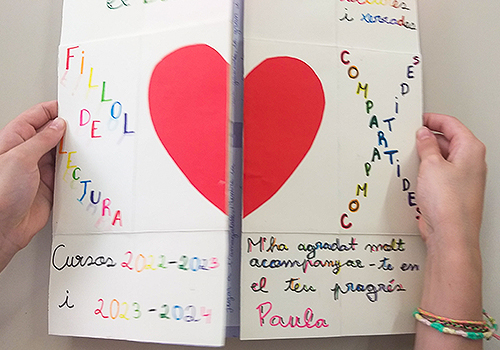 i xerrades
FILLOL
DE
LECTURA
COMPARTIDES
COMPARTIDES
Cursos 2022-2023
i 2023-2024
M'ha agradat molt
acompanyar-te en
el teu progrés
Paula